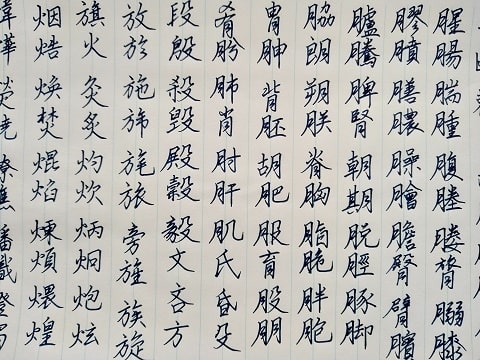 腥腸腨腫腹塍膢膂膃膝
膠膹膳膿臊膾膽臀臂臏
臚騰脾腎朝期脫脛豚脚
脇朗朔朕脊胸脂脆胖胞
胄胂背胚胡肥服育股朋
肴肹肺肖肘肝肌氏昏殳
段殷殺毀殿穀毅文吝方
放於施斾旄旅旁旌族旋
旗火灸炙灼炊炳炯炮炫
烟焅煥焚焜焰煉煩煨煌